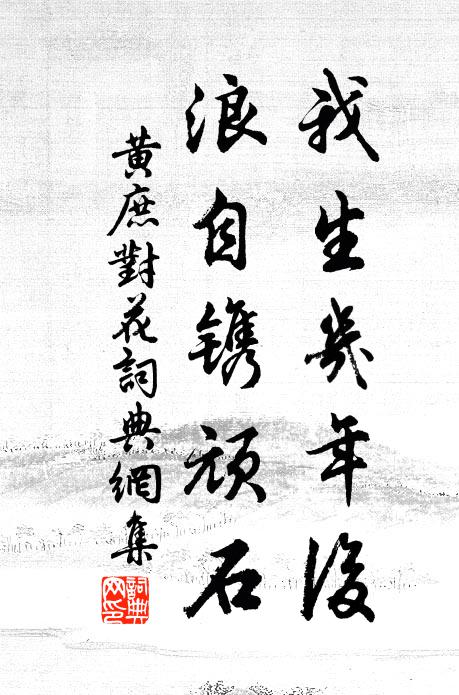 我生幾年後
浪自鐫頑石
黃庶對花詞典網集
詞典網印